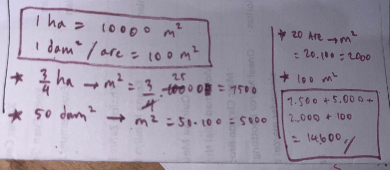 1 ha = 10000 m²
1 dam² / are = 100 m²
* 3/4 ha → m² = 3/4 10000 25 = 7500
* 50 dam² → m² = 50.100 = 5000
* 20 Are → m²
= 20.100 = 2000
* 100 m²
7.500 + 5.000 +
2.000 + 100
= 14.600 //